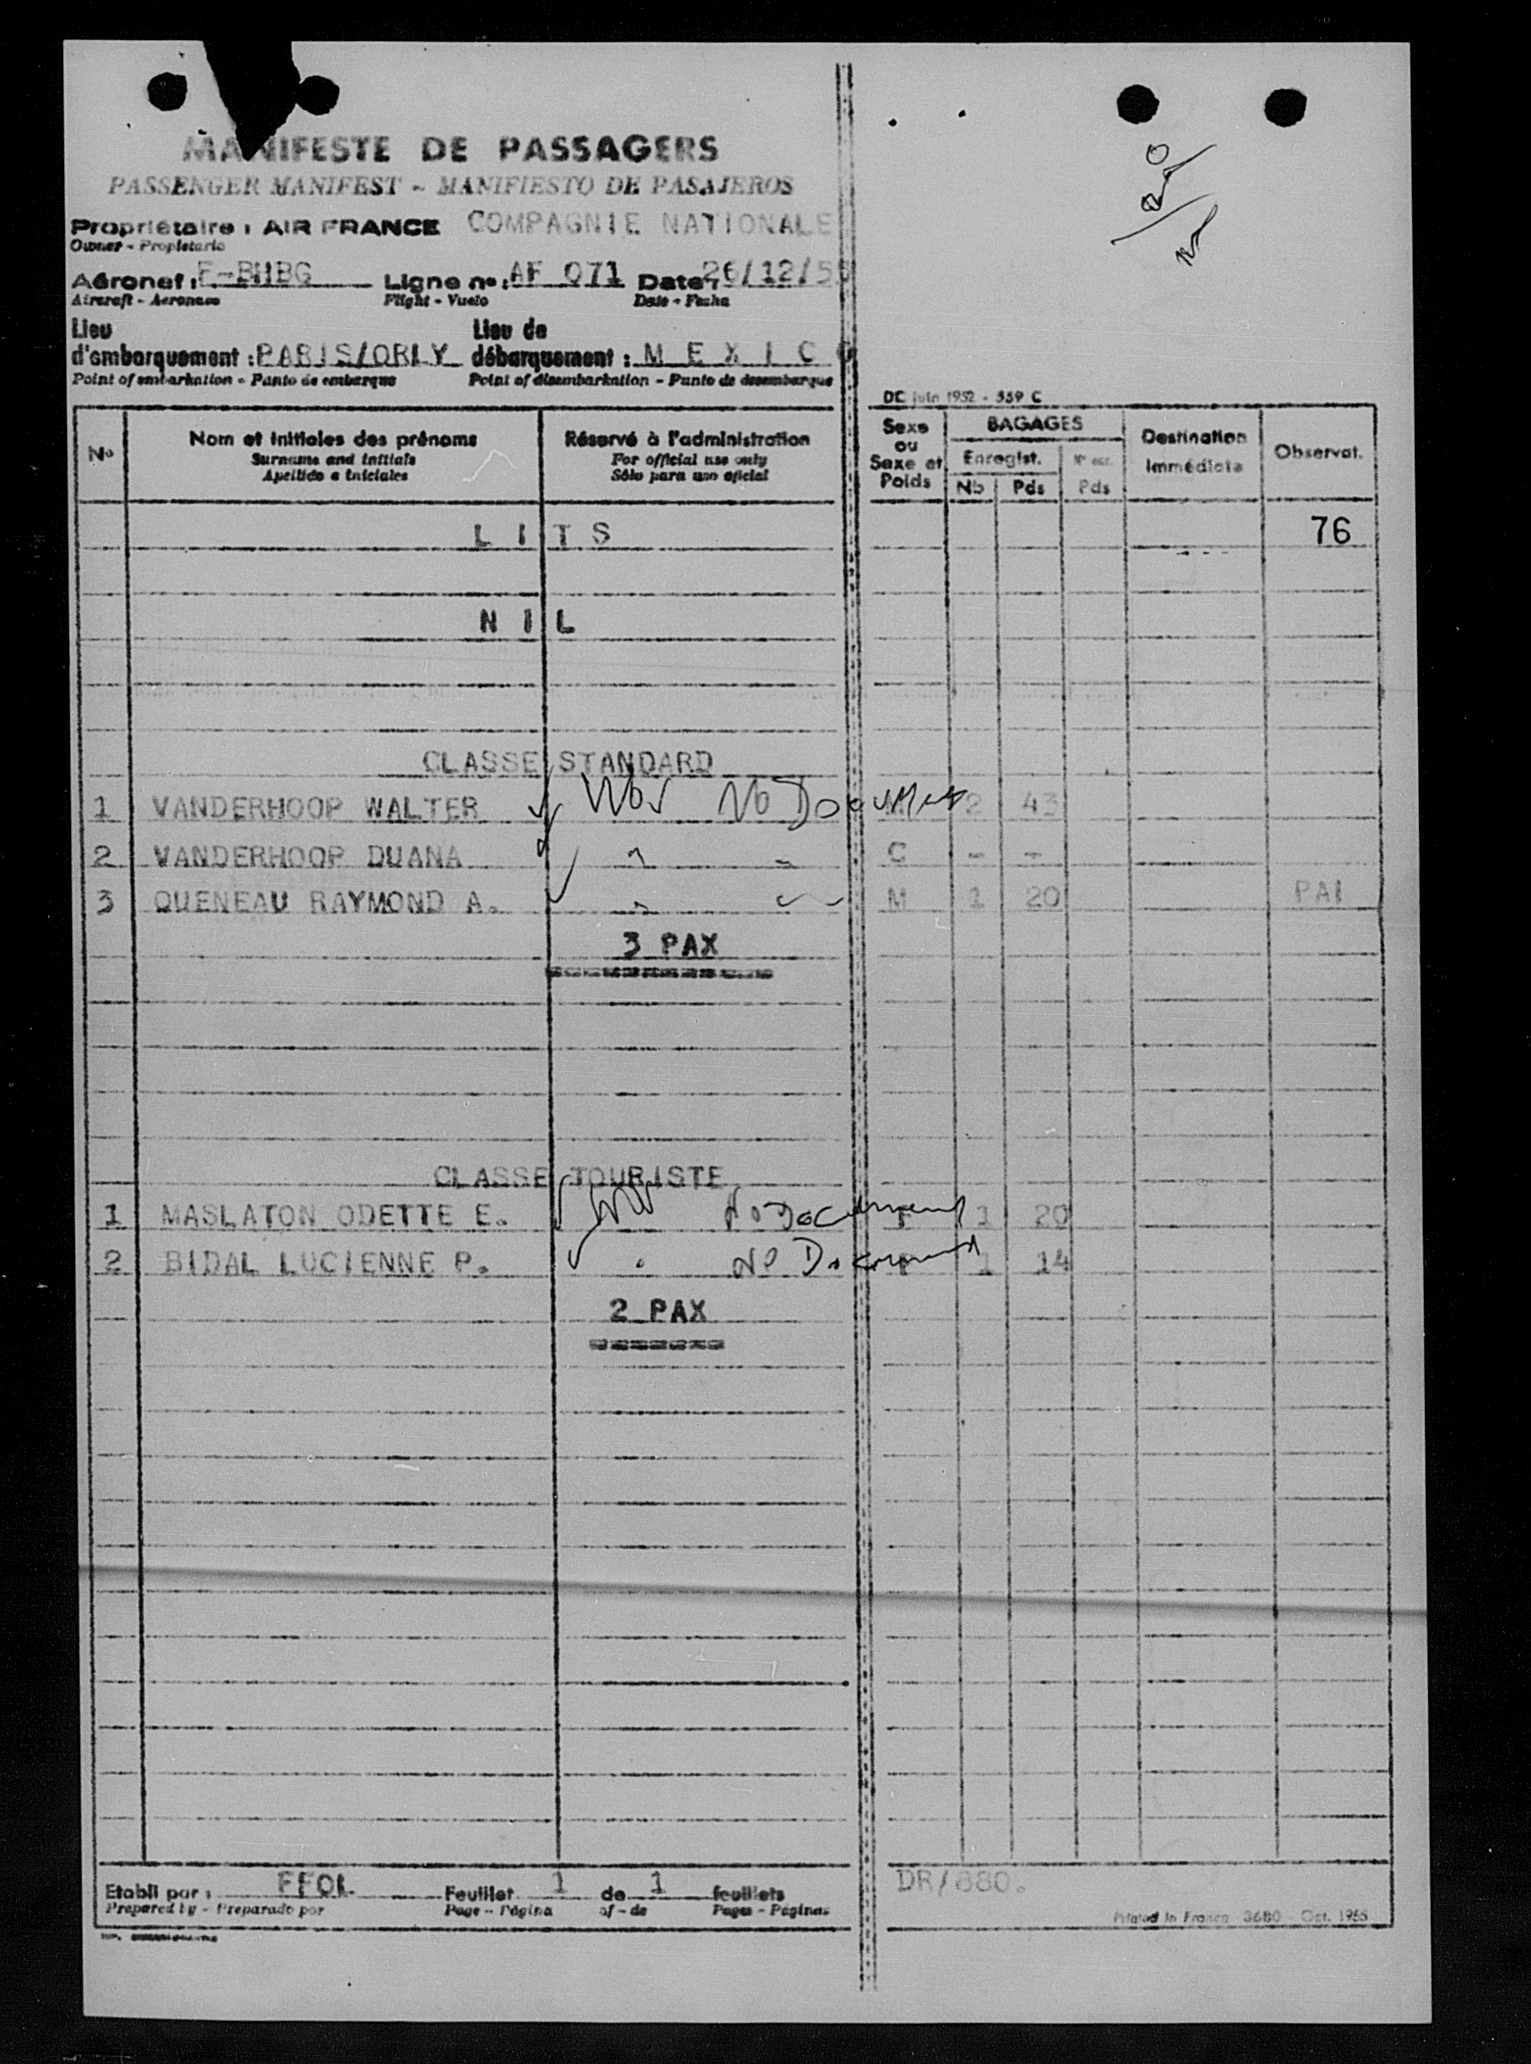 MANIFESTE DE PASSAGERS
PASSENGER MANIFEST - MANIFIESTO DE PASAJEROS
Propriétaire : AIR FRANCE COMPAGNIE NATIONALE
Owner - Propietario
Aéronef : F-BHBG Ligne n° : AF 071 Date : 26/12/55
Aircraft - Aeronave Flight - Vuelo Date - Fecha
Lieu d'embarquement : PARIS/ORLY Lieu de débarquement : M E X I C O
Point of embarkation - Punto de embarque Point of disembarkation - Punto de desembarque
DC juin 1952 - 559 C
N° Nom et initiales des prénoms Réservé à l'administration Sexe ou Sexe et Poids BAGAGES Destination Immédiate Observat.
Surname and initials For official use only Enregist. N° enr.
Apellido e iniciales Sólo para uso oficial Nb Pds Pds
L I T S 76
N I L
CLASSE STANDARD
1 VANDERHOOP WALTER No Document 2 43
2 VANDERHOOP DUANA C - -
3 QUENEAU RAYMOND A. M 1 20 PAI
3 PAX
CLASSE TOURISTE
1 MASLATON ODETTE E. No Document F 1 20
2 BIDAL LUCIENNE P. No Document F 1 14
2 PAX
Etabli par : FFOL Feuillet 1 de 1 feuillets DR/880.
Prepared by - Preparado por Page - Página of - de Pages - Páginas
Printed in France 3680 - Oct. 1955